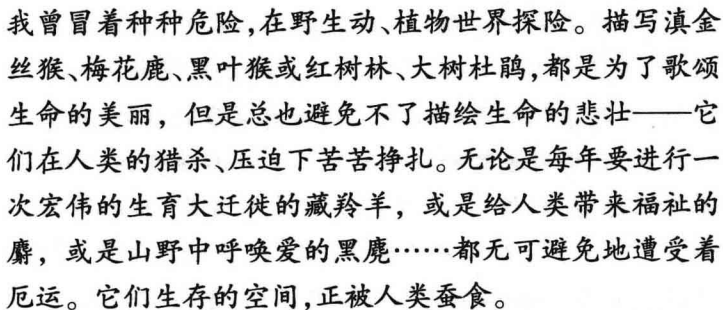 我曾冒着种种危险,在野生动、植物世界探险。描写滇金
丝猴、梅花鹿、黑叶猴或红树林、大树杜鹃,都是为了歌颂
生命的美丽，但是总也避免不了描绘生命的悲壮——它
们在人类的猎杀、压迫下苦苦挣扎。无论是每年要进行一
次宏伟的生育大迁徙的藏羚羊，或是给人类带来福祉的
麝，或是山野中呼唤爱的黑麂……都无可避免地遭受着
厄运。它们生存的空间,正被人类蚕食。